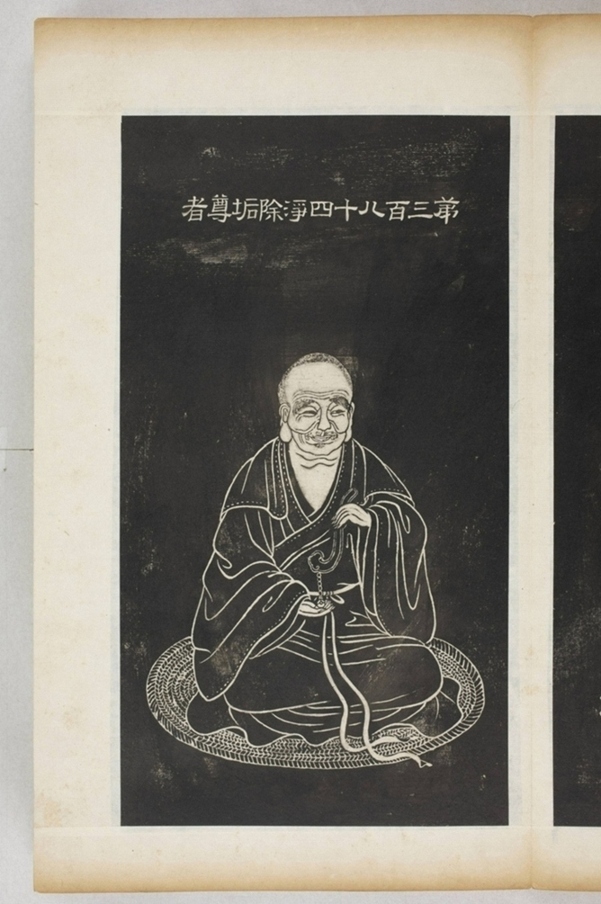 苐三百八十四淨除垢尊者